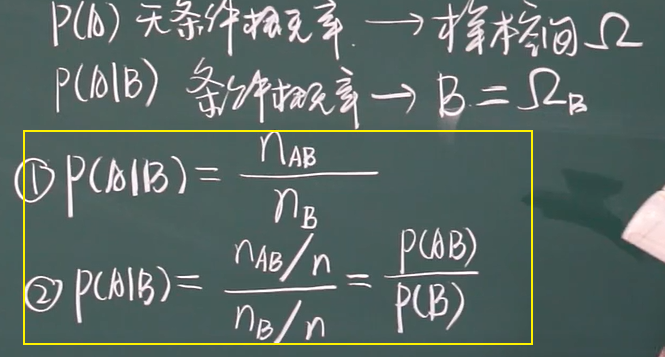 P(A) 无条件概率. → 样本空间 Ω
P(A|B) 条件概率 → B = Ω_B
① P(A|B) = n_AB / n_B
② P(A|B) = (n_AB/n) / (n_B/n) = P(AB) / P(B)